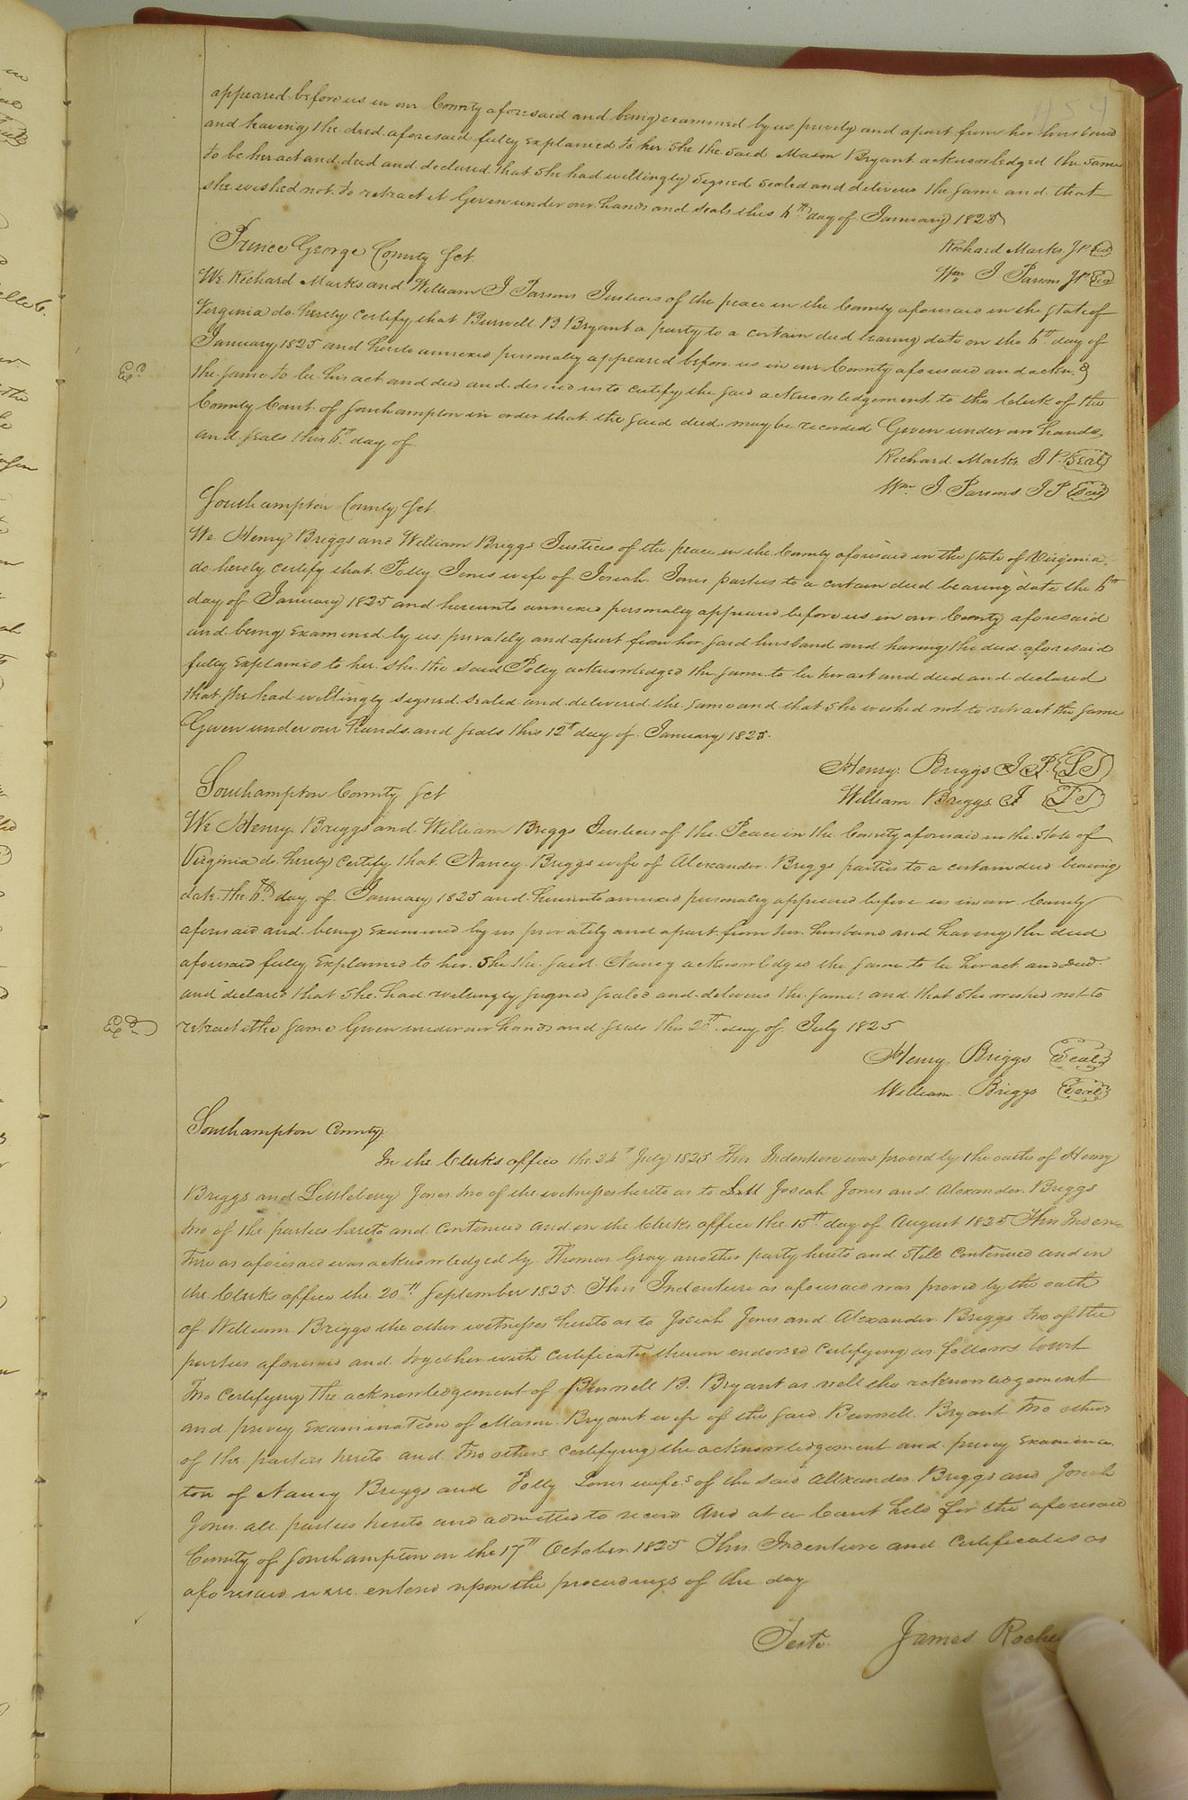 appeared before us in our County aforesaid and being examined by us privily and apart from her husband
and having the deed aforesaid fully explained to her She the said Mason Bryant acknowledged the same
to be her act and deed and declared that She had willingly Signed Sealed and delivered the Same and that
she wished not to retract it Given under our hands and seals this 6th day of January 1825
Richard Marks JP Seal
Prince George County Sct
Wm J Parsons JP Seal
We Richard Marks and William J Parsons Justices of the peace in the County aforesaid in the State of
Virginia do hereby certify that Burwell B Bryant a party to a certain deed bearing date on the 6th day of
January 1825 and hereto annexed personally appeared before us in our County aforesaid and ackn.d
the same to be his act and deed and desired us to certify the said acknowledgement to the Clerk of the
County Court of Southampton in order that the said deed may be recorded Given under our hands
and seals this 6th day of
Richard Marks J P. Seal
Wm J. Parsons J P Seal
Southampton County Sct
We Henry Briggs and William Briggs Justices of the peace in the County aforesaid in the State of Virginia
do hereby certify that Polly Jones wife of Josiah Jones parties to a certain deed bearing date the 6th
day of January 1825 and hereunto annexed personally appeared before us in our County aforesaid
and being Examined by us privately and apart from her said husband and having the deed aforesaid
fully Explained to her she the said Polly acknowledged the same to be her act and deed and declared
that she had willingly signed sealed and delivered the same and that she wished not to retract the same
Given under our Hands and seals this 12th day of January 1825.
Henry Briggs J P. LS
William Briggs J LS
Southampton County Sct
We Henry Briggs and William Briggs Justices of the Peace in the County aforesaid in the State of
Virginia do hereby certify that Nancy Briggs wife of Alexander Briggs parties to a certain deed bearing
date the 6th day of January 1825 and hereunto annexed personally appeared before us in our County
aforesaid and being Examined by us privately and apart from her husband and having the deed
aforesaid fully Explained to her She the said Nancy acknowledged the same to be her act and deed
and declared that She had willingly signed sealed and delivered the same and that she wished not to
retract the same Given under our hands and seals this day of July 1825
Henry Briggs Seal
William Briggs Seal
Southampton County
In the Clerks office the July 1825 This Indenture was proved by the oaths of Henry
Briggs and Littleberry Jones two of the witnesses hereto as to Josiah Jones and Alexander Briggs
two of the parties hereto and Continued and in the Clerks office the 15th day of August 1825 This Inden-
ture as aforesaid was acknowledged by Thomas Gray another party hereto and still Continued and in
the Clerks office the 20th September 1825 This Indenture as aforesaid was proved by the oath
of William Briggs the other witness hereto as to Josiah Jones and Alexander Briggs two of the
parties aforesaid and together with Certificates thereon endorsed certifying as follows towit
Two certifying the acknowledgement of Burwell B. Bryant as well the acknowledgement
and privey Examination of Mason Bryant wife of the said Burwell Bryant two others
of the parties hereto and two others certifying the acknowledgement and privey Examina
tion of Nancy Briggs and Polly Jones wifes of the said Alexander Briggs and Josiah
Jones all parties hereto and admitted to record And at a Court held for the aforesaid
County of Southampton on the 17th October 1825 This Indenture and Certificates as
aforesaid were entered upon the proceedings of the day
Teste James